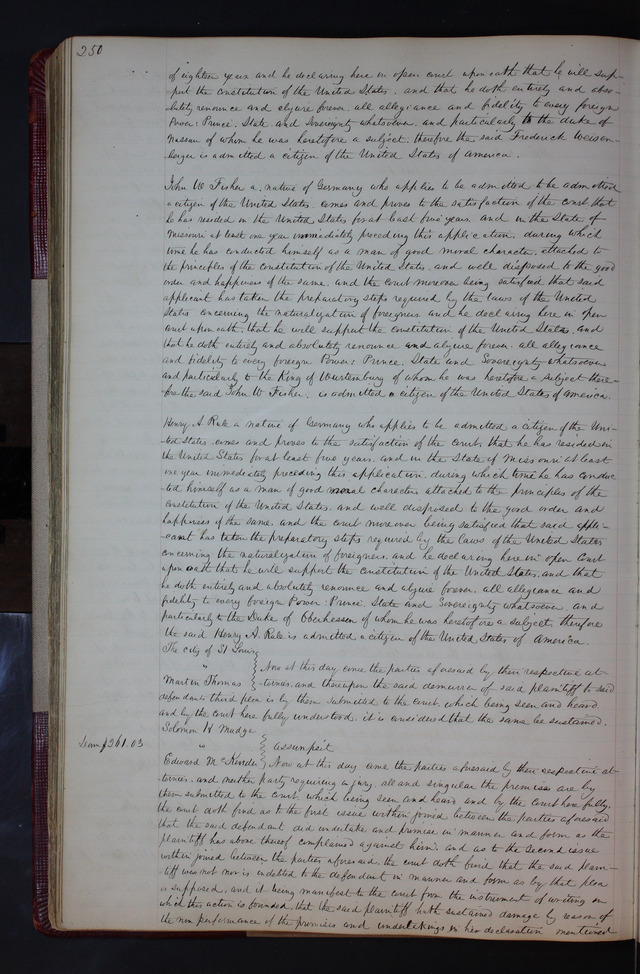 250
of eighteen years and he declaring here in open court upon oath that he will sup-
port the constitution of the United States. and that he doth entirely and abso-
lutely renounce and abjure forever all allegiance and fidelity to every foreign
Power: Prince, State and Sovereignty whatsoever. and particularly to the duke of
Nassau of whom he was heretofore a subject. therefore the said Frederick Weisen-
berger is admitted a citizen of the United States of America.
John W Fisher a. native of Germany who applies to be admitted to be admitted
a citizen of the United States. comes and proves to the satisfaction of the court that
he has resided in the United States for at least five years. and in the State of
Missouri at least one year immediately preceding this application. during which
time he has conducted himself as a man of good moral character. attached to
the principles of the constitution of the United States. and well disposed to the good
order and happiness of the same. and the court moreover being satisfied that said
applicant has taken the preparatory steps required by the laws of the United
States concerning the naturalization of foreigners and he declaring here in open
court upon oath. that he will support the constitution of the United States, and
that he doth entirely and absolutely renounce and abjure forever. all allegiance
and fidelity to every foreign Power: Prince, State and Sovereignty whatsoever
and particularly to the King of Wurtemburg of whom he was heretofore a subject there-
fore the said John W Fisher, is admitted a citizen of the United States of America.
Henry A Rale a native of Germany who applies to be admitted a citizen of the Uni-
ted States. comes and proves to the satisfaction of the court, that he has resided in
the United States for at least five years. and in the State of Missouri at least
one year immediately preceding this application. during which time he has conduc-
ted himself as a man of good moral character attached to the principles of the
constitution of the United States. and well disposed to the good order and
happiness of the same. and the court moreover being satisfied that said appli-
cant has taken the preparatory steps required by the laws of the United States
concerning the naturalization of foreigners. and he declaring here in open Court
upon oath that he will support the constitution of the United States. and that
he doth entirely and absolutely renounce and abjure forever. all allegiance and
fidelity to every foreign Power: Prince, State and Sovereignty whatsoever. and
particularly to the Duke of Oberhessen of whom he was heretofore a subject, therefore
the said Henry A. Rale is admitted a citizen of the United States of America.
The city of St Louis
" Now at this day come the parties aforesaid by their respective at-
Martin Thomas torneys. and thereupon the said demurrer of said plaintiff to said
defendants third plea is by them submitted to the court. which being seen and heard
and by the court here fully understood. it is considered that the same be sustained.
Solomon H Mudge
" assumpsit
Edward Now at this day came the parties aforesaid by their respective at-
torneys. and neither party requiring a jury. all and singular the premises are by
them submitted to the court. which being seen and heard and by the court here fully.
the court doth find as to the first issue within joined between the parties aforesaid
that the said defendant did undertake and promise in manner and form as the
plaintiff has above thereof complained against him. and as to the second issue
within joined between the parties aforesaid, the court doth find that the said plain-
tiff was not nor is indebted to the defendant in manner and form as by that plea
is supposed, and it being manifest to the court from the instrument of writing on
which this action is founded. that the said plaintiff hath sustained damage by reason of
the non performance of the promises and undertakings in her declaration mentioned